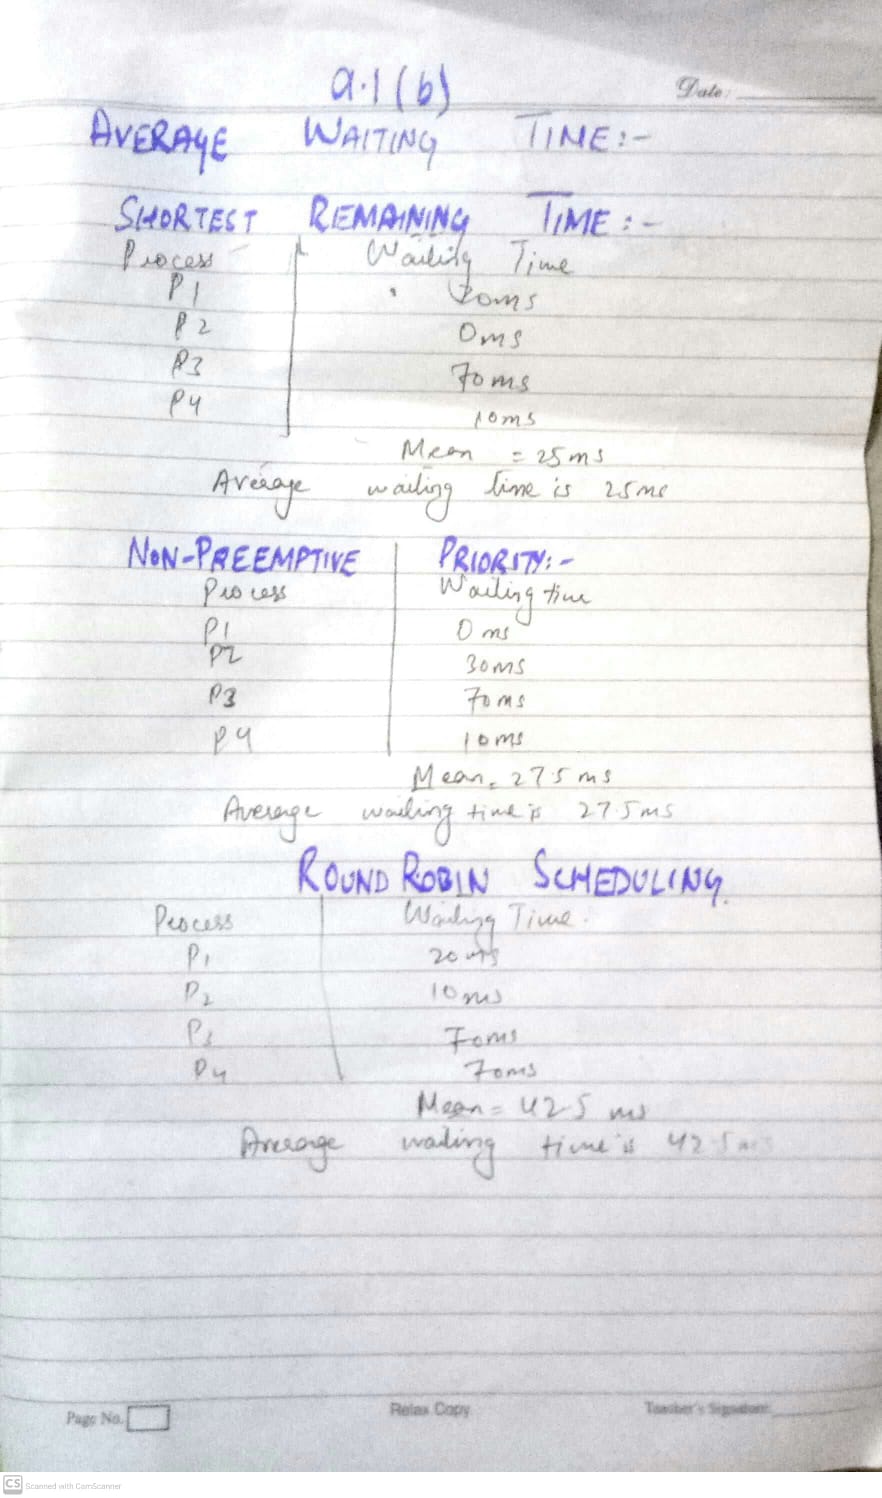 a.1(b)
Date:
AVERAGE WAITING TIME:-
SHORTEST REMAINING TIME:-
Process Waiting Time
P1 20ms
P2 0ms
P3 70ms
P4 10ms
Mean = 25ms
Average waiting time is 25ms
NON-PREEMPTIVE PRIORITY:-
Process Waiting time
P1 0 ms
P2 30ms
P3 70ms
P4 10ms
Mean = 27.5 ms
Average waiting time is 27.5ms
ROUND ROBIN SCHEDULING.
Process Waiting Time.
P1 20ms
P2 10ms
P3 70ms
P4 70ms
Mean = 42.5 ms
Average waiting time is 42.5ms
Page No.
Relax Copy
Teacher's Signature:
CS Scanned with CamScanner